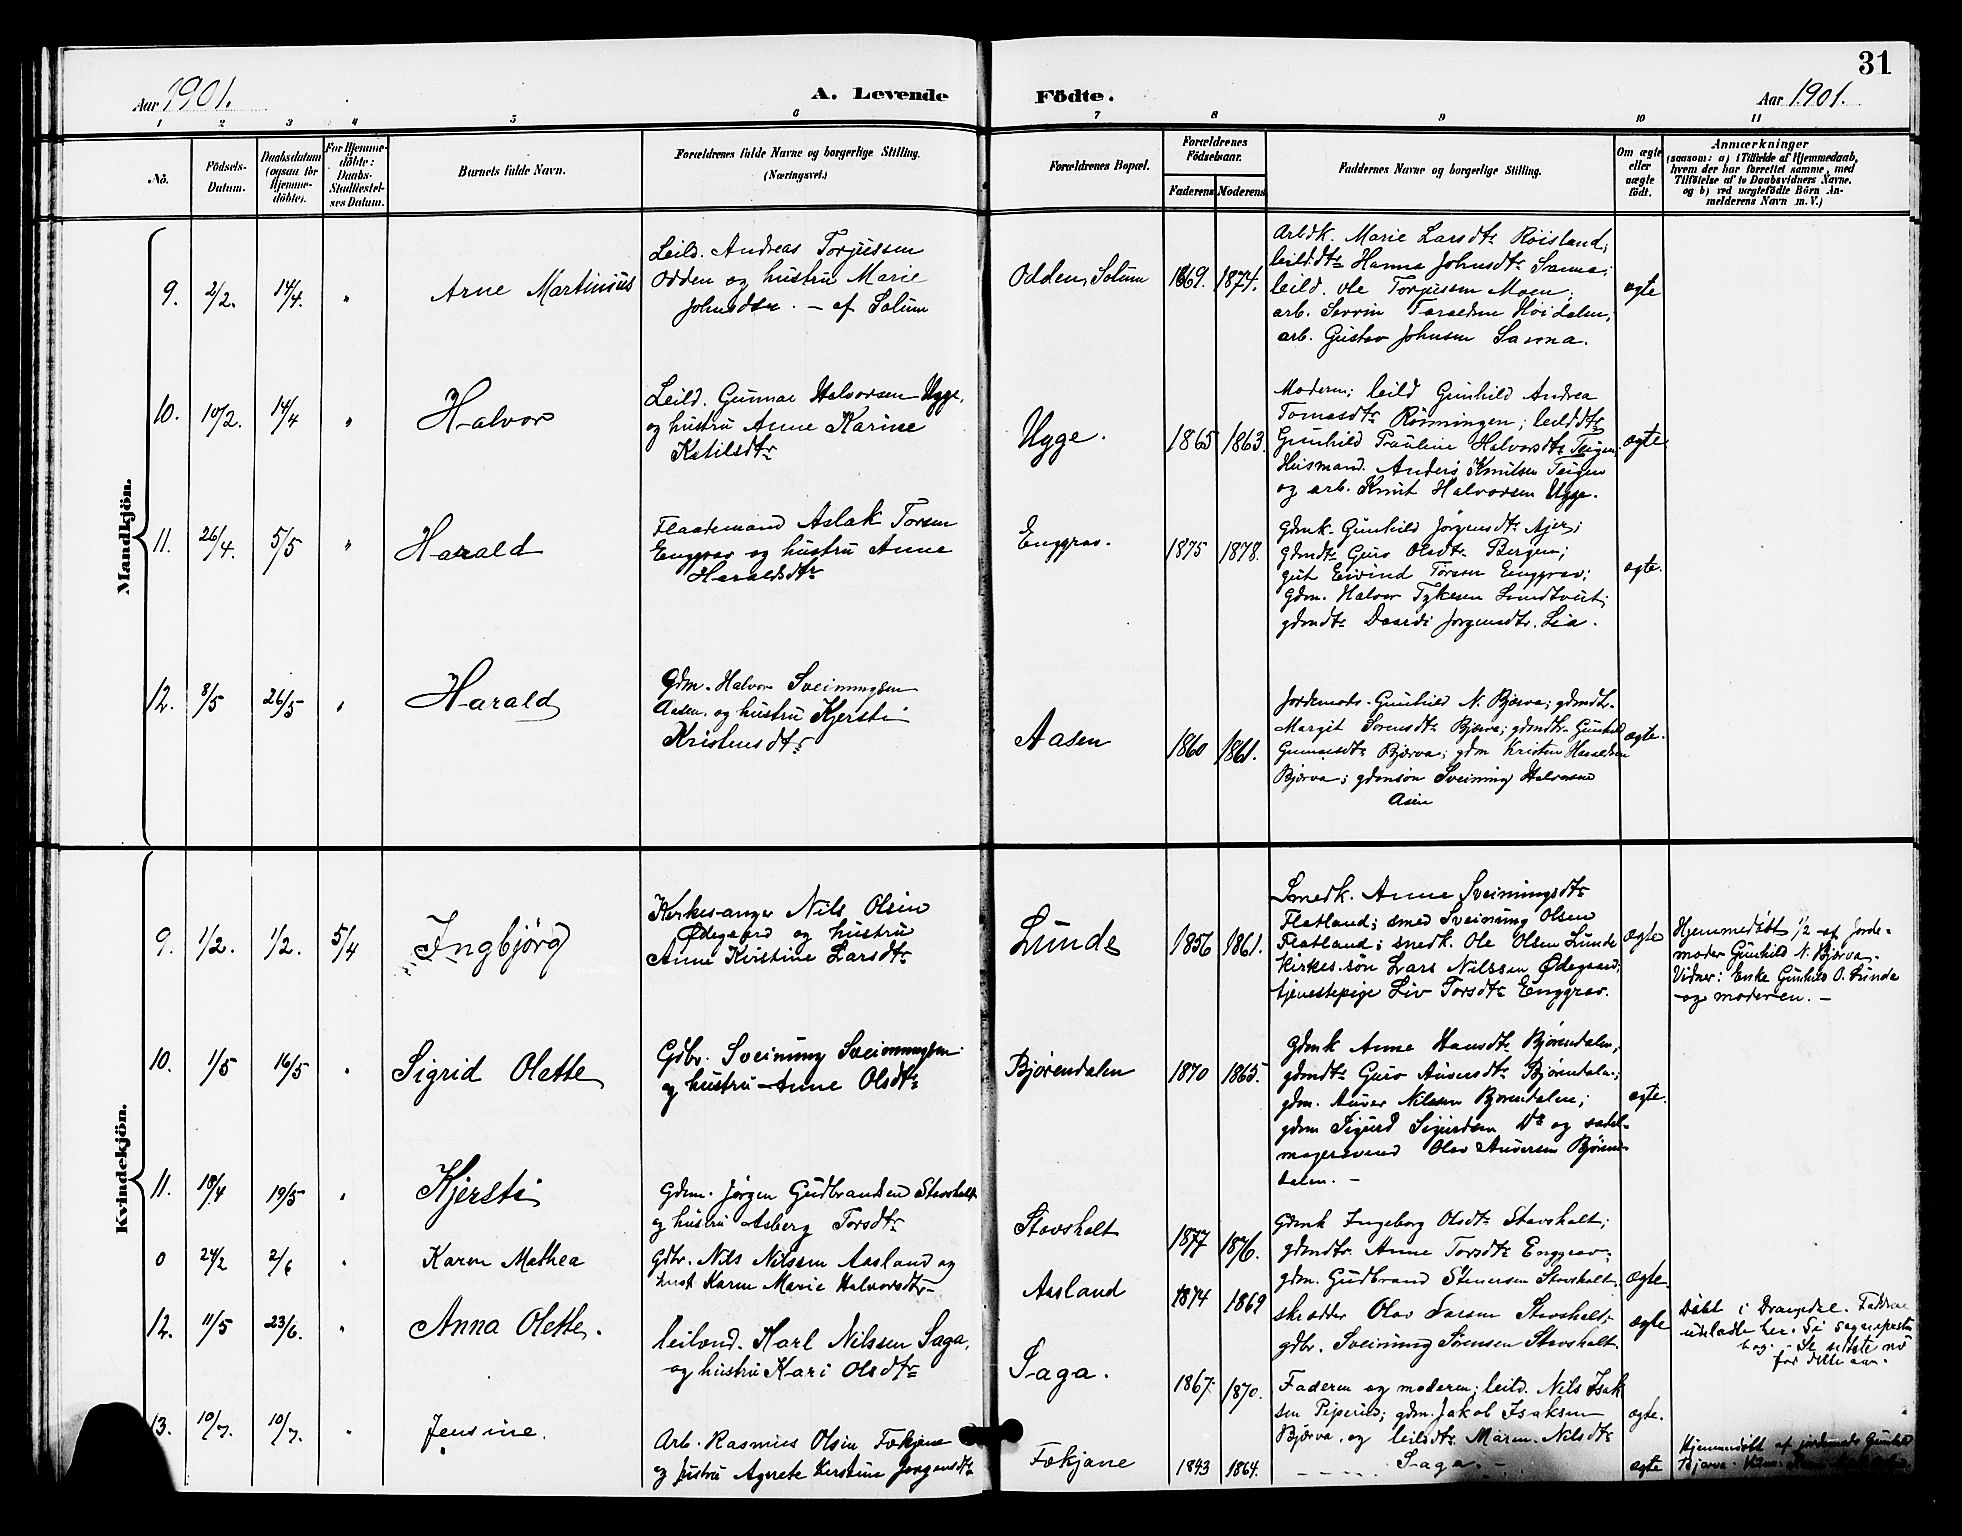 31
Aar 1901.
A. Levende Födte.
Aar 1901.
1 2 3 4 5 6 7 8 9 10 11
No.
Födsels-Datum.
Daabsdatum (ogsaa for Hjemme-döbte).
For Hjemme-döbte: Daabs-Stadfæstel-ses Datum.
Barnets fulde Navn.
Forældrenes fulde Navne og borgerlige Stilling.
(Næringsvei.)
Forældrenes Bopæl.
Forældrenes Födselsaar.
Faderens Moderens
Faddernes Navne og borgerlige Stilling.
Om ægte eller uægte födt.
Anmærkninger
(saasom: a) i Tilfælde af Hjemmedaab,
hvem der har forrettet samme, med
Tilföielse af to Daabsvidners Navne.
og b) ved uægtefödte Börn An-
melderens Navn m. V.)
Mandkjön.
9. 2/2. 14/4. "
Arne Martinius
Leild. Andreas Torjussen
Odden og hustru Marie
Johnsdtr. - af Solum
Odden, Solum
1869. 1874.
Arbdk. Marie Larsdtr Röisland;
leild.dtr Hanna Johnsdtr Sanna;
leild. Ole Torjussen Moen;
arb. Høidalen;
arb. Gustav Johnsen Sanna.
ægte
10. 10/2. 14/4 "
Halvor
Leild. Gunnar Halvorsen Ugge,
og hustru Anne Karine
Ketilsdtr
Ugge.
1865 1863.
Moderen; leild Gunhild Andrea
Tomasdtr Rönningen; leilddtr
Gunhild Pauline Halvorsdtr Teigen
Husmand. Anders Knutsen Teigen
og arb. Knut Halvorsen Ugge.
ægte.
11. 26/4. 5/5 "
Harald
Flaademand Aslak Torsen
Enggrav og hustru Anne
Haraldsdtr
Enggrav.
1875 1878.
Gdmk. Gunhild Jørgensdtr
gdmdtr Guro Olsdtr Bergen;
gut Eivind Torsen Enggrav;
gdm. Halvor Lundtveit;
gdmdtr Jørgensdtr. Lia.
ægte.
12. 8/5 26/5 "
Harald
Gdm. Halvor Sveinungsen
Aasen. og hustru Kjersti
Kristensdtr
Aasen
1860 1861.
Jordemods. Gunhild N. Bjørva; gdmdtr.
Margit Bjørva; gdmdtr. Gunhild
Gunnarsdtr Bjørva; gdm Kristen
Bjørva; gdmsøn Sveinung Halvorsen
Asen
ægte.
Kvindekjön.
9. 1/2. 1/2. 5/4
Ingbjörg
Kirkesanger Nils Olsen
Ødegaard og hustru
Anne Kirstine Larsdtr
Lunde
1856 1861.
Smedk. Anne Sveinungsdtr
Flatland; smed Sveinung Olsen
Flatland; snedk. Ole Olsen Lunde
Kirkes.søn Lars Nilssen Ødegaard;
tjenestepige Liv Torsdtr Enggrav.
ægte
Hjemmedøbt 1/2 af Jorde-
moder Gunhild N. Bjørva.
Vidner: Enke Gunhild O. Lunde
og moderen. -
10. 1/5 16/5 "
Sigrid Olette
Gdbr. Sveinung Sveinungsen
og hustru Anne Olsdtr
Bjørendalen
1870 1865.
Gdmk Anne Hansdtr Bjørendalen;
gdmdtr Guro Auversdtr Bjørendalen;
gdm. Auver Nilssen Bjørendalen;
gdm Sigurd Sigurdsen Do og sadel-
magersvend Olav Auversen Bjøren-
dalen. -
ægte.
11. 18/4 19/5 "
Kjersti
Gdm. Jørgen Gudbrandsen Stavsholt
og hustru Asberg Torsdtr
Stavsholt
1877 1876.
Gdmk Ingeborg Olsdtr Stavsholt;
gdmdtr. Anne Torsdtr Enggrav.
gdm. Gudbrand Stenersen Stavsholt.
skrædder Olav Stavsholt;
gdbr. Sveinung Sørensen Stavsholt.
ægte.
0 24/2 2/6 "
Karen Mathea
Gdbr. Nils Nilssen Aasland og
hust Karen Marie Halvorsdtr.
Aasland
1874 1869
ægte
Døbt i Drangedal. Faddere
udeladte her. Se
bog. - Se sidste no
for dette aar.
12. 11/5 23/6. "
Anna Olette.
Leilænd. Karl Nilssen Saga,
og hustru Kari Olsdtr
Saga.
1867. 1870.
Faderen og moderen; leild. Nils Isak
sen Piperlid; gdm. Jakob Isaksen
Bjørva, og leildtr Maren Nilsdtr
Saga. -
ægte.
13. 10/7. 10/7. "
Jensine.
Arb. Rasmus Olsen Fækjane
og hustru Agnete Kirstine Jørgensdtr.
Fækjane
1843 1864.
ægte
Hjemmedøbt af jordemods Gunhild
Bjørva.